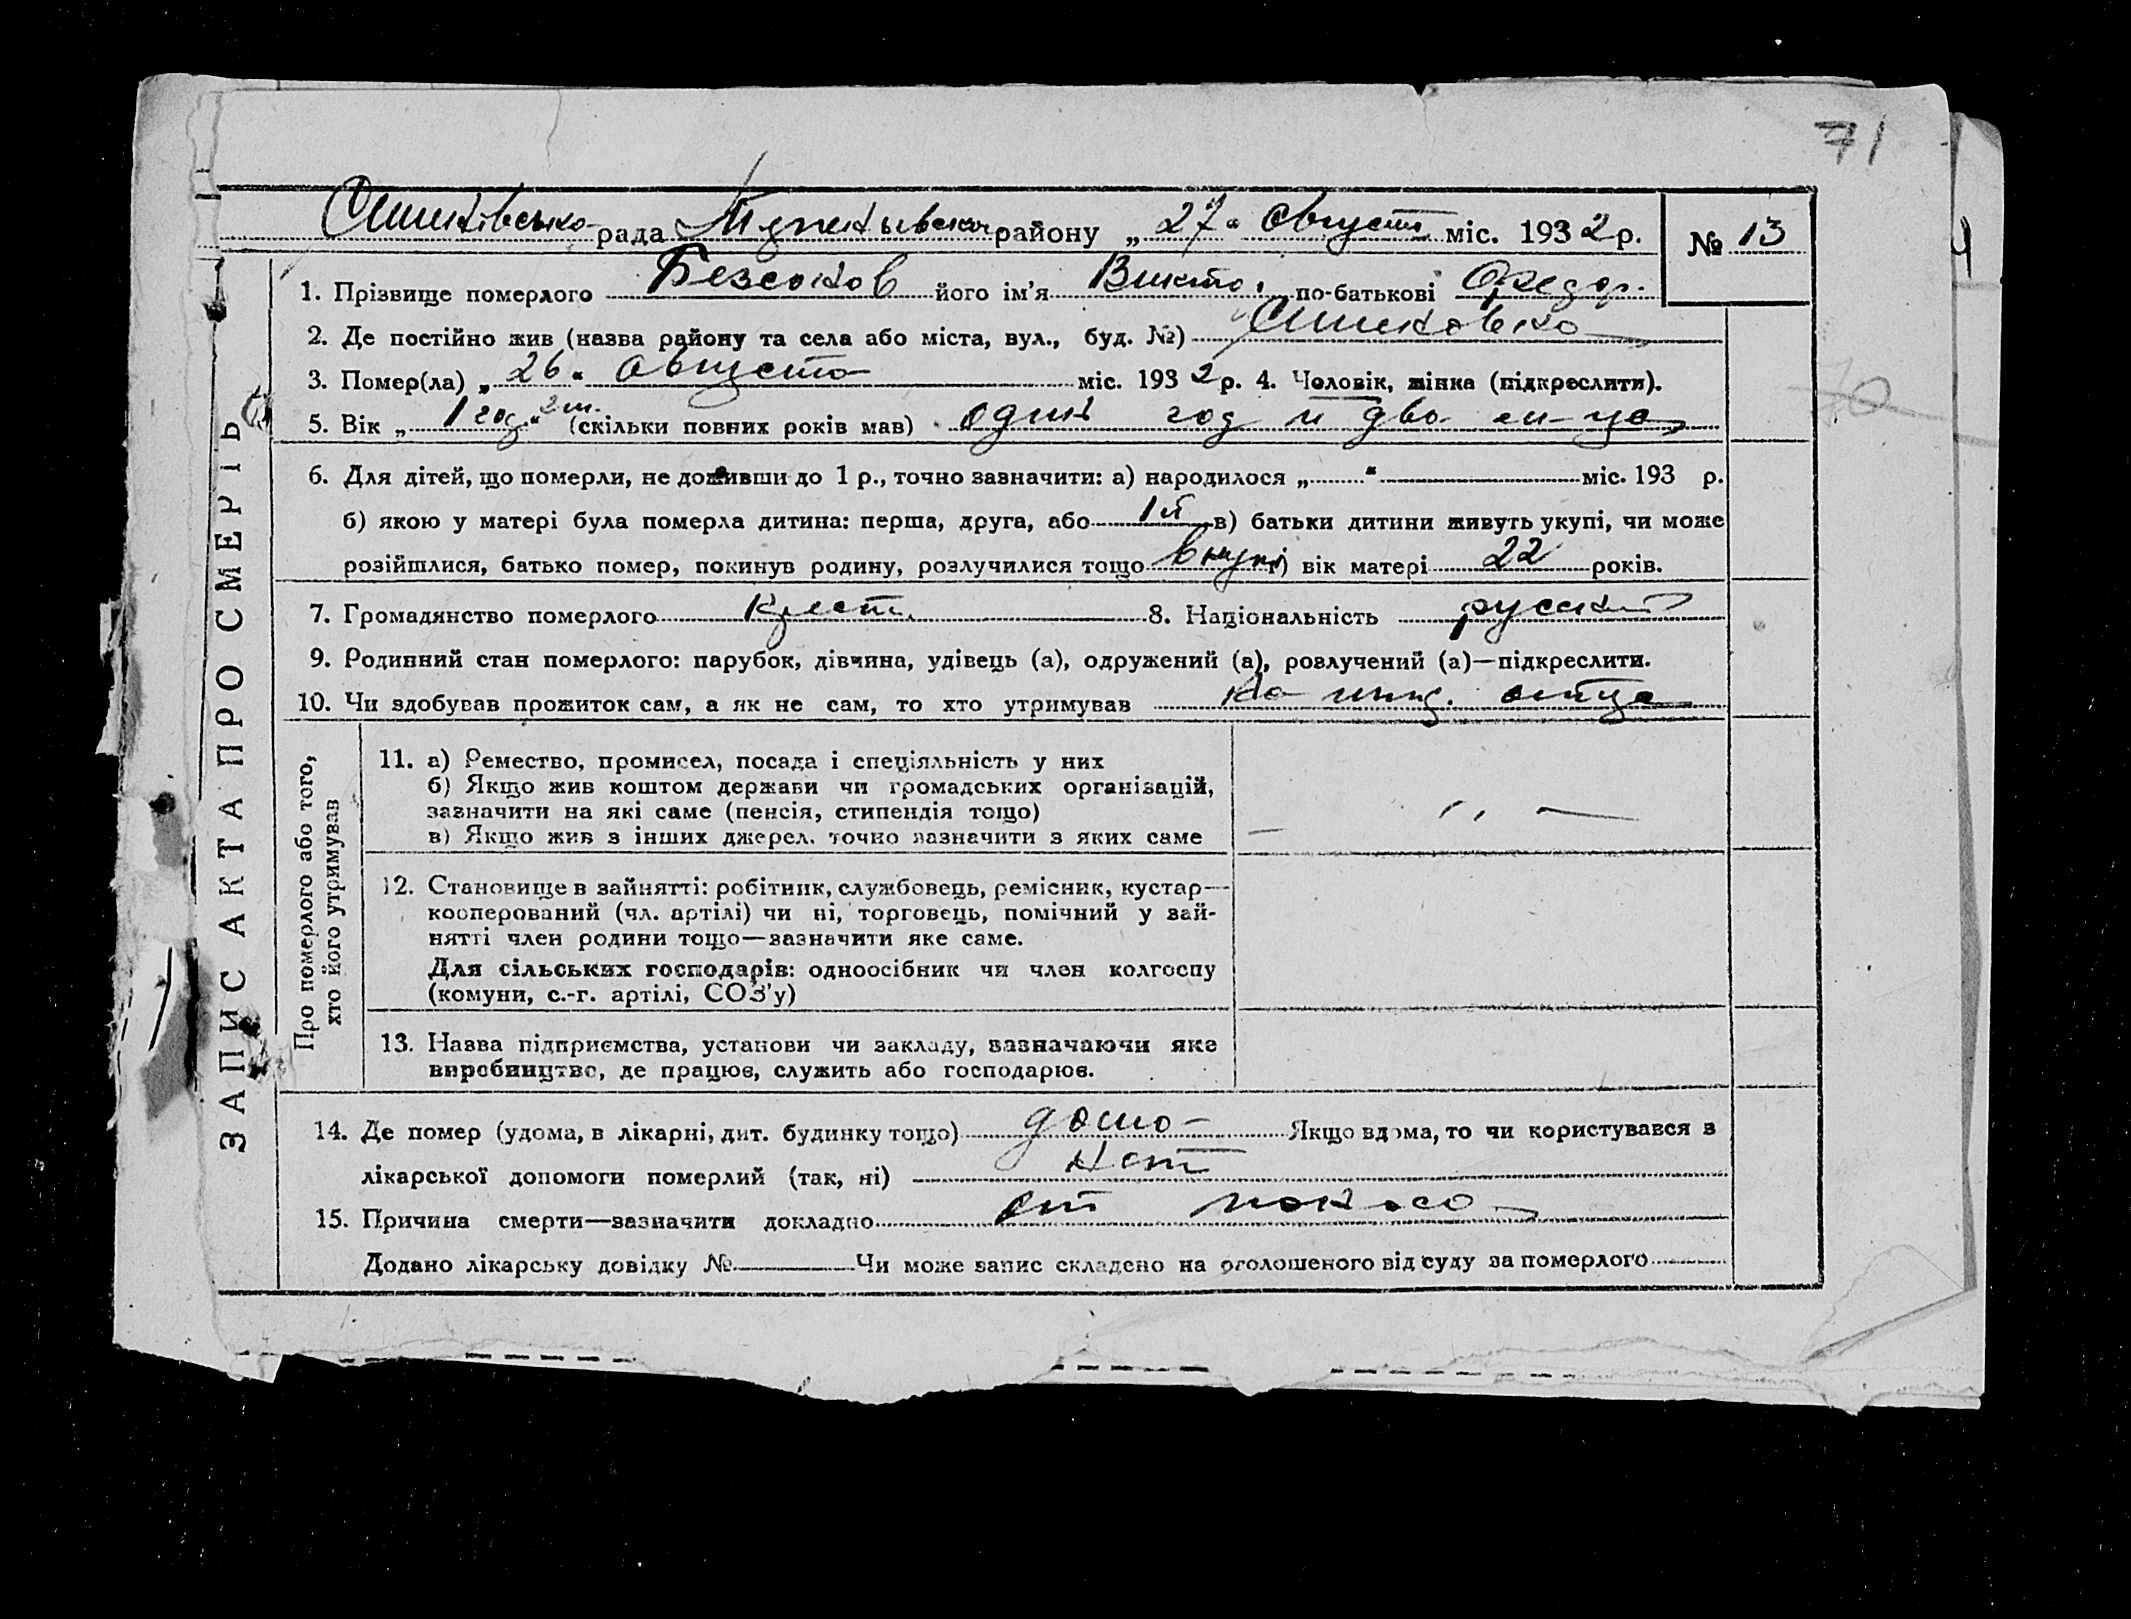 71
рада района „27“ Августа міс. 1932 р. № 13
1. Прізвище померлого його ім’я по-батькові Федор.
2. Де постійно жив (назва району та села або міста, вул., буд. №)
3. Помер(ла) „26“ Августа міс. 1932 р. 4. Чоловік, жінка (підкреслити).
5. Вік „1 год 2 м.“ (скільки повних років мав) один год и два м-ца
70
6. Для дітей, що померли, не доживши до 1 р., точно зазначити: а) народилося „ “ міс. 193 р.
б) якою у матері була померла дитина: перша, друга, або 1й в) батьки дитини живуть укупі, чи може
розійшлися, батько помер, покинув родину, розлучилися тощо вкупі г) вік матері 22 років.
7. Громадянство померлого Крест. 8. Національність русский
9. Родинний стан померлого: парубок, дівчина, удівець (а), одружений (а), розлучений (а)—підкреслити.
10. Чи здобував прожиток сам, а як не сам, то хто утримував на ижд. отца
ЗАПИС АКТА ПРО СМЕРТЬ
Про померлого або того,
хто його утримував
11. а) Ремество, промисел, посада і спеціяльність у них
б) Якщо жив коштом держави чи громадських організацій,
зазначити на які саме (пенсія, стипендія тощо)
в) Якщо жив з інших джерел, точно зазначити з яких саме
12. Становище в зайнятті: робітник, службовець, ремісник, кустар—
кооперований (чл. артілі) чи ні, торговець, помічний у зай-
нятті член родини тощо—зазначити яке саме.
Для сільських господарів: одноосібник чи член колгоспу
(комуни, с.-г. артілі, СОЗ’у)
13. Назва підприємства, установи чи закладу, зазначаючи яке
виробництво, де працює, служить або господарює.
14. Де помер (удома, в лікарні, дит. будинку тощо) дома Якщо вдома, то чи користувався з
лікарської допомоги померлий (так, ні) нет
15. Причина смерти—зазначити докладно от поноса
Додано лікарську довідку № Чи може запис складено на оголошеного від суду за померлого